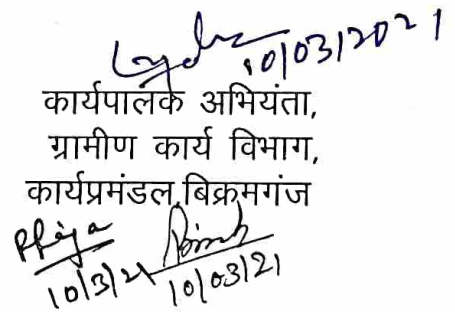 10/03/2021
कार्यपालक अभियंता,
ग्रामीण कार्य विभाग,
कार्यप्रमंडल,बिक्रमगंज
10/3/21 10/03/21